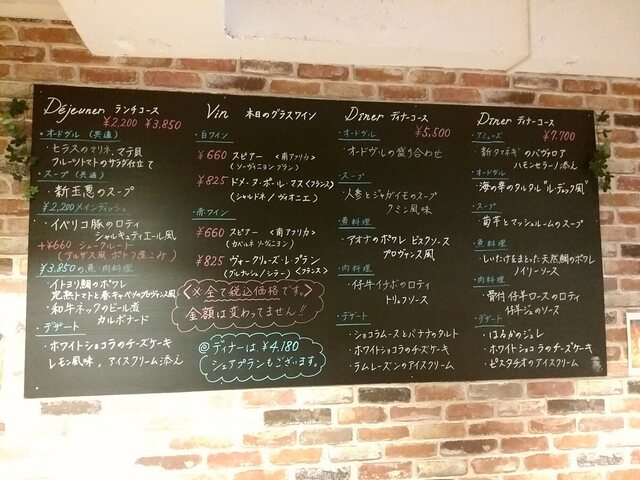 Déjeuner ランチコース
¥2,200 ¥3,850
・オードヴル (共通)
・ヒラスのマリネ、マテ貝
フルーツトマトのサラダ仕立て
・スープ (共通)
・新玉葱のスープ
¥2,200メインディッシュ
・イベリコ豚のロティ
シャルキュティエール風
+¥660 シュークルート
(アルザス風 ポトフ煮こみ)
¥3,850の魚・肉料理
・イトヨリ鯛のポワレ
完熟トマトと春キャベツのプロヴァンス風
・和牛ネックのビール煮
カルボナード
・デザート
・ホワイトショコラのチーズケーキ
レモン風味、アイスクリーム添え
Vin 本日のグラスワイン
・白ワイン
¥660 スピアー 〈南アフリカ〉
(ソーヴィニヨンブラン)
¥825 ドメーヌ・ポール・マス〈フランス〉
(シャルドネ/ヴィオニエ)
・赤ワイン
¥660 スピアー 〈南アフリカ〉
(カベルネ ソーヴィニヨン)
¥825 ヴォークリューズ・レ・プラン
(グルナッシュ/シラー) 〈フランス〉
〈※全て税込価格です。〉
金額は変わってません!!
@ディナーは、¥4,180
シェアプランもございます。
Dîner ディナーコース
¥5,500
・オードヴル
・オードヴルの盛り合わせ
・スープ
・人参とジャガイモのスープ
クミン風味
・魚料理
・アオナのポワレ ビスクソース
プロヴァンス風
・肉料理
・仔牛イチボのロティ
トリュフソース
・デザート
・ショコラムースとバナナのタルト
・ホワイトショコラのチーズケーキ
・ラムレーズンのアイスクリーム
Dîner ディナーコース
¥7,700
・アミューズ
・新タマネギのババロア
ハモンセラーノ添え
・オードヴル
・海の幸のタルタル "ルデュック風"
・スープ
・菊芋とマッシュルームのスープ
・魚料理
・しいたけをまとった天然鯛のポワレ
ノイリーソース
・肉料理
・骨付仔羊ロースのロティ
仔羊ジュのソース
・デザート
・はるかのジュレ
・ホワイトショコラのチーズケーキ
・ピスタチオのアイスクリーム